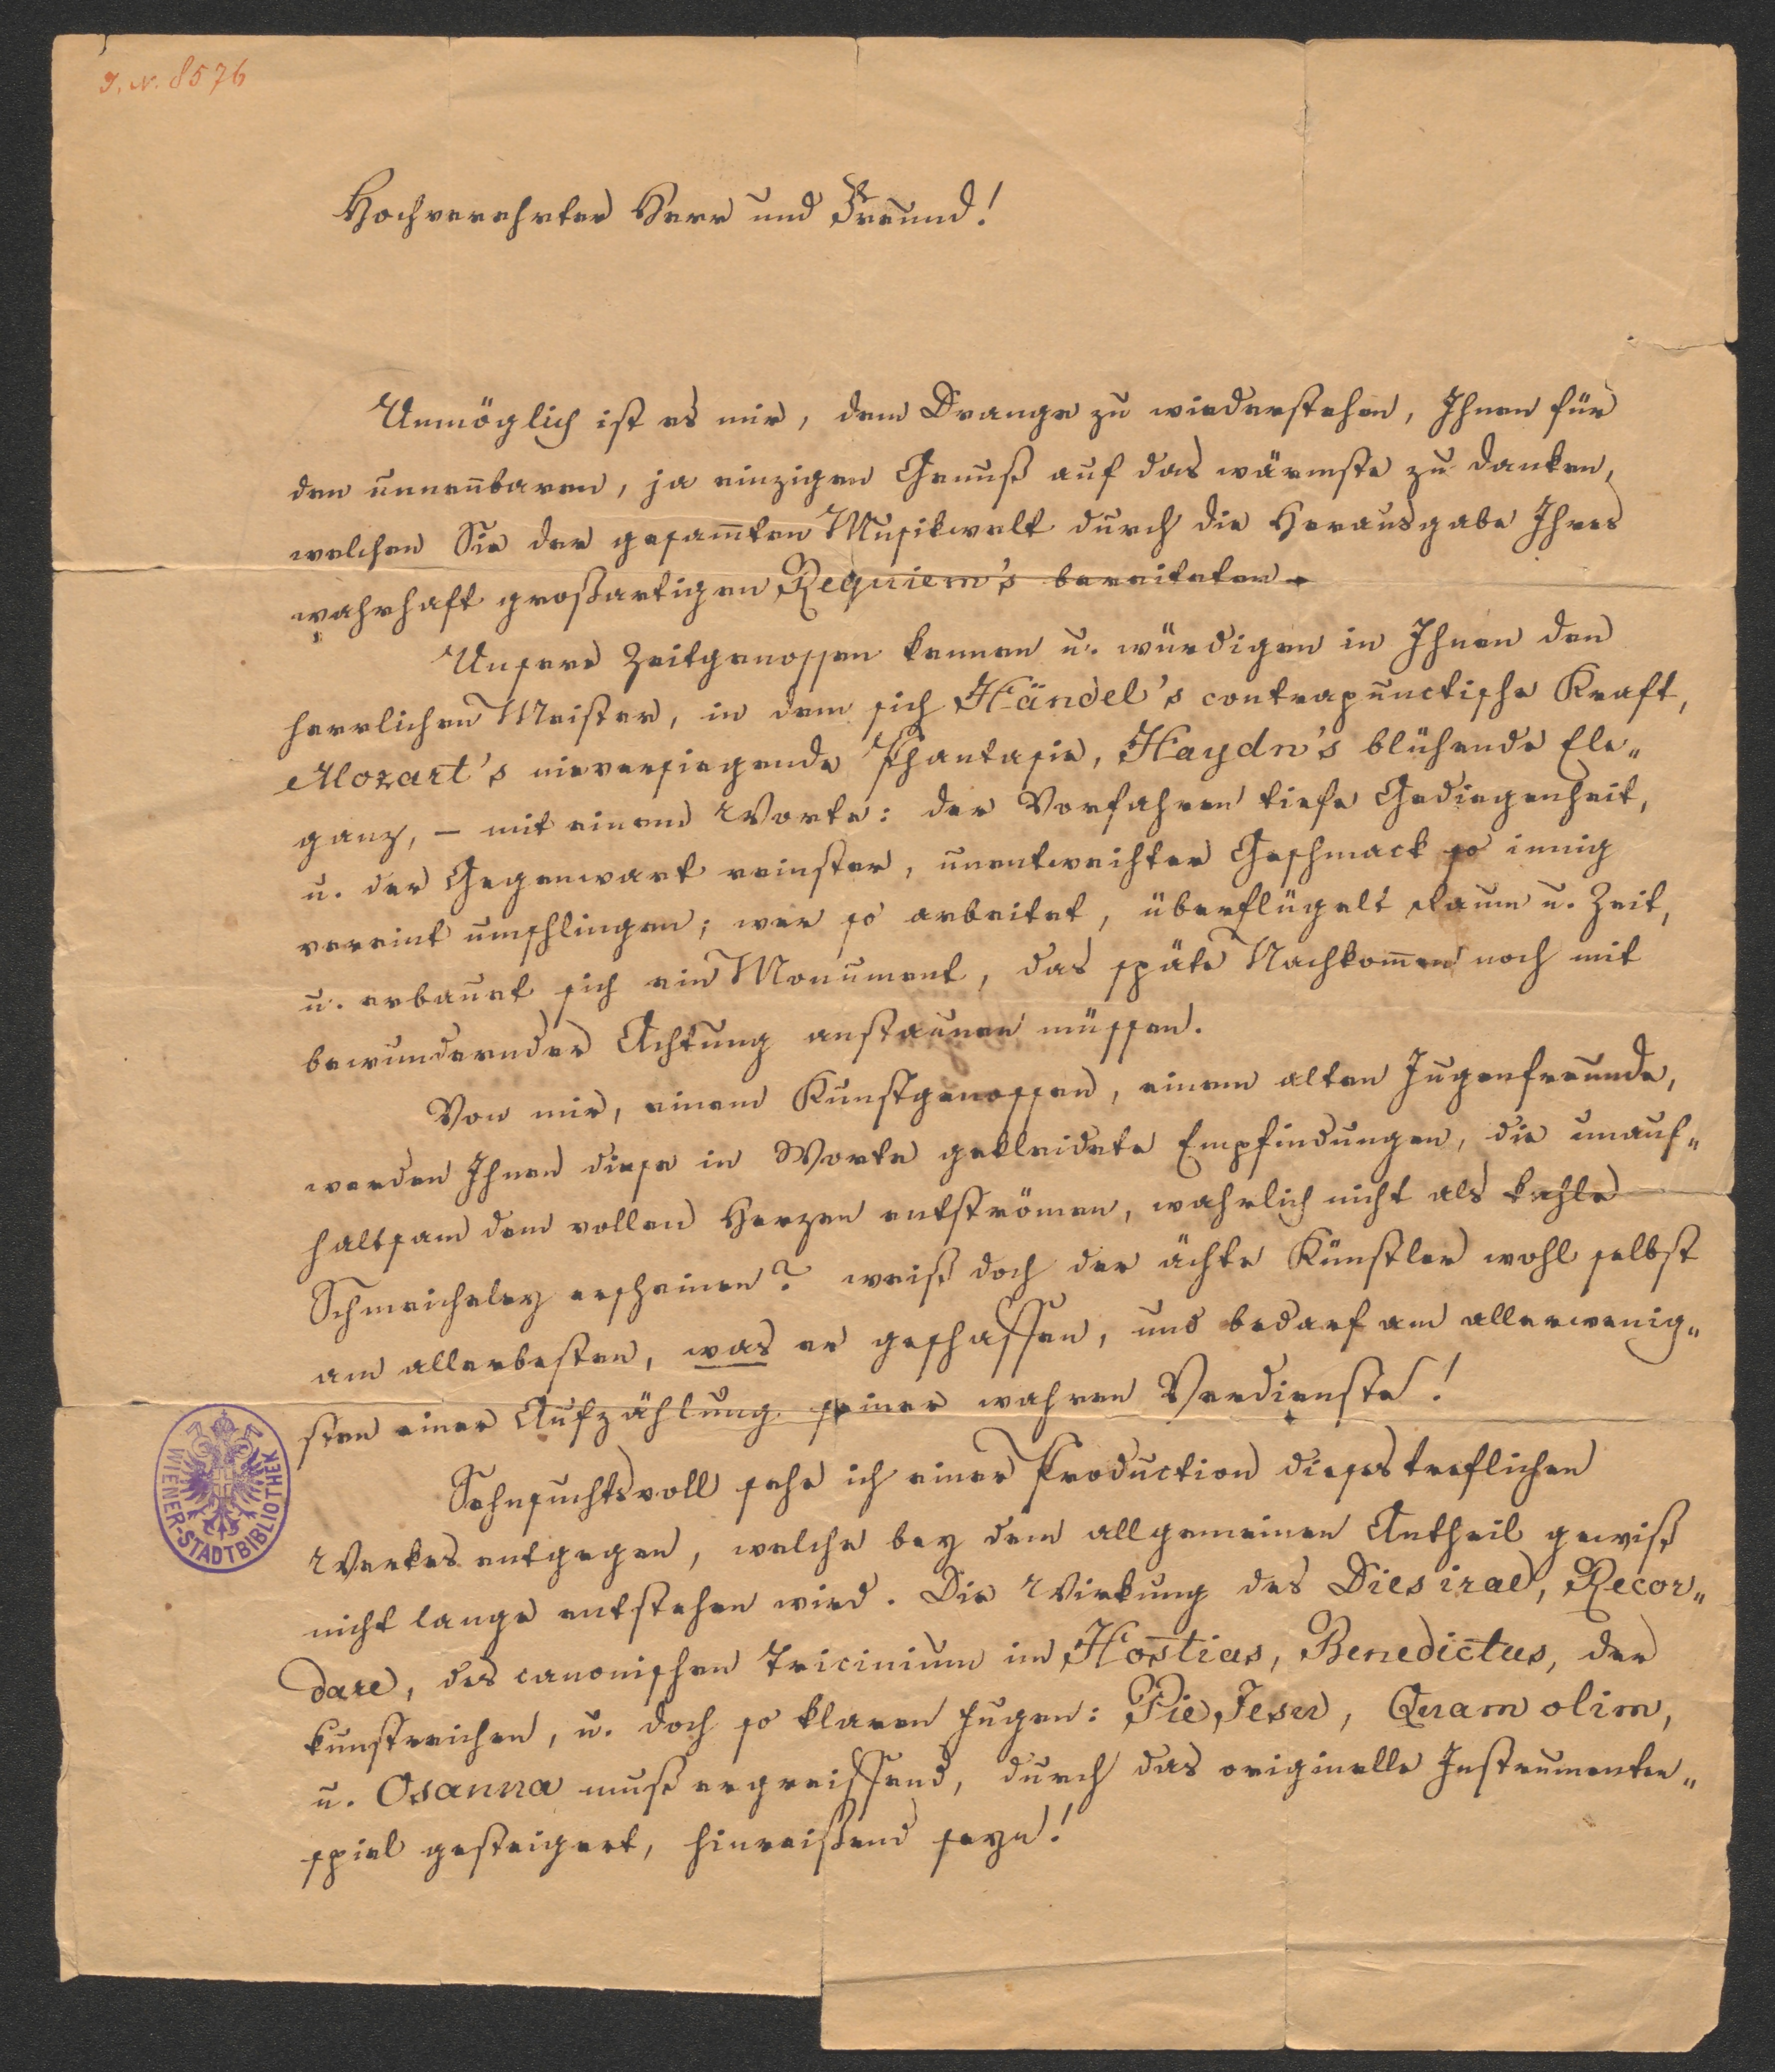 I. N. 8576
Hochverehrter Herr und Freund!
Unmöglich ist es mir, dem Drange zu wiederstehen, Ihnen für
den unnen̄baren, ja einzigen Genuß auf das wärmste zu danken,
welchen Sie der gesam̄ten Musikwelt durch die Herausgabe Ihres
wahrhaft großartigen Requiem's bereiteten.
Unsere Zeitgenossen kennen u. würdigen in Ihnen den
herrlichen Meister, in dem sich Händel's contrapunctische Kraft,
Mozart's nieversiegende Phantasie, Haydn's blühende Ele„
ganz, – mit einem Worte: der Vorfahren tiefe Gediegenheit,
u. der Gegenwart reinster, unentweihter Geschmack so innig
vereint umschlingen; wer so arbeitet, überflügelt Raum u. Zeit,
u. erbauet sich ein Monument, das späte Nachkom̄en noch mit
bewundernder Achtung anstaunen müssen.
Von mir, einem Kunstgenossen, einem alten Jugenfreunde,
werden Ihnen diese in Worte gekleidete Empfindungen, die unauf„
haltsam dem vollen Herzen entströmen, wahrlich nicht als kahle
Schmeicheley erscheinen? weiß doch der ächte Künstler wohl selbst
am allerbesten, was er geschaffen, und bedarf am allerwenig„
sten einer Aufzählung seiner wahren Verdienste!
Sehnsuchtsvoll sehe ich einer Production dieses treflichen
Werkes entgegen, welche bey dem allgemeinen Antheil gewiß
nicht lange entstehen wird. Die Wirkung des Dies irae, Recor„
dare, des canonischen Tricinium im Hostias, Benedictus, der
kunstreichen, u. doch so klaren Fugen: Pie Jesu, Quam olim,
u. Osanna muß ergreiffend, durch das originelle Instrumenten„
spiel gesteigert, hinreißend seyn!
WIENER-STADTBIBLIOTHEK